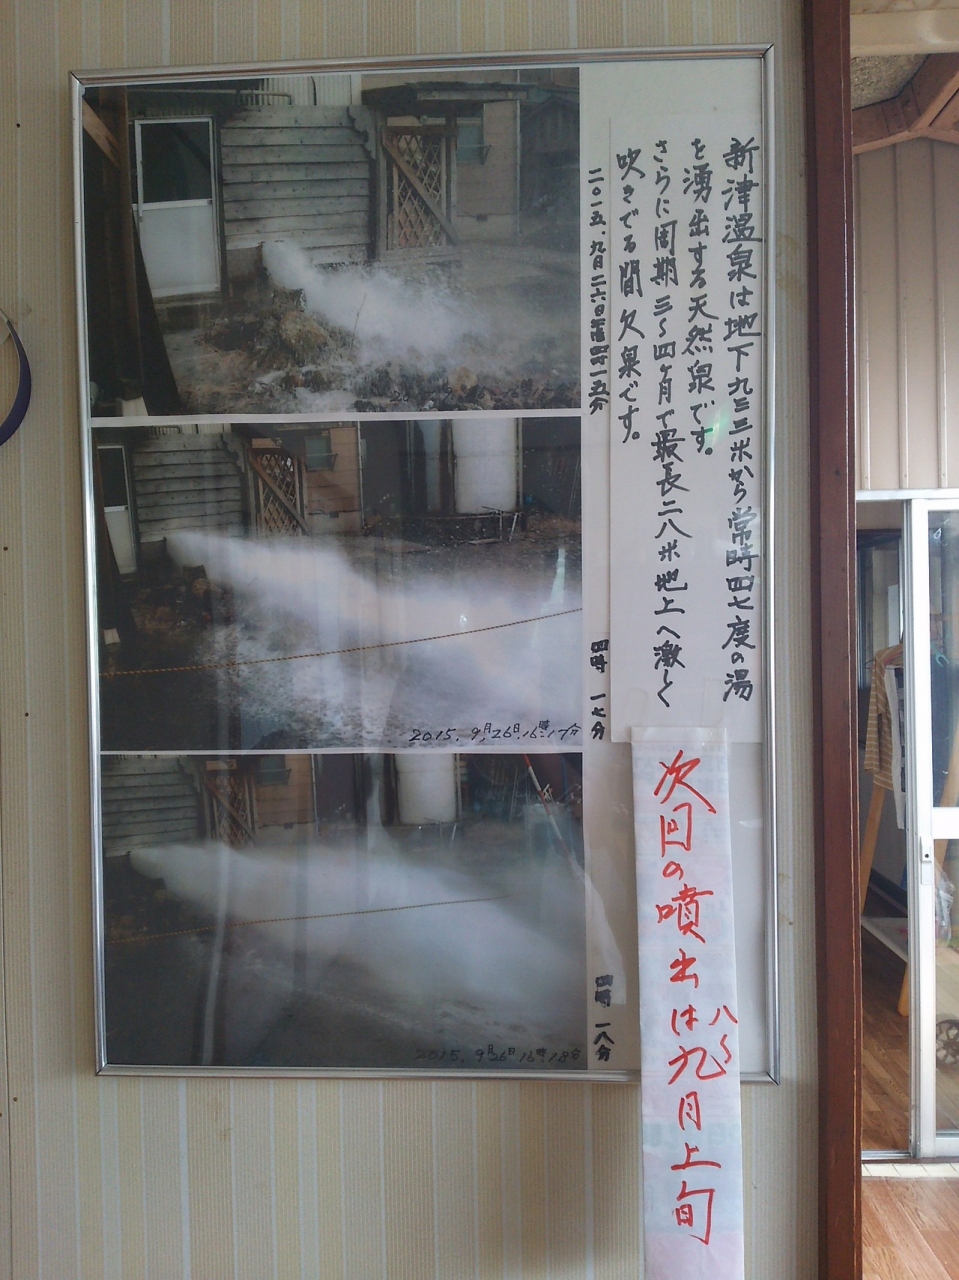 新津温泉は地下九三三米から常時四七度の湯
を湧出する天然泉です。
さらに周期三〜四ヶ月で最長二八米地上へ激しく
吹きでる間欠泉です。
二〇一五、九月二六日午后四時一五分
四時一七分
2015, 9月26日,16時:17分
四時一八分
2015, 9月26日16時:18分
次回の噴出は八〜九月上旬